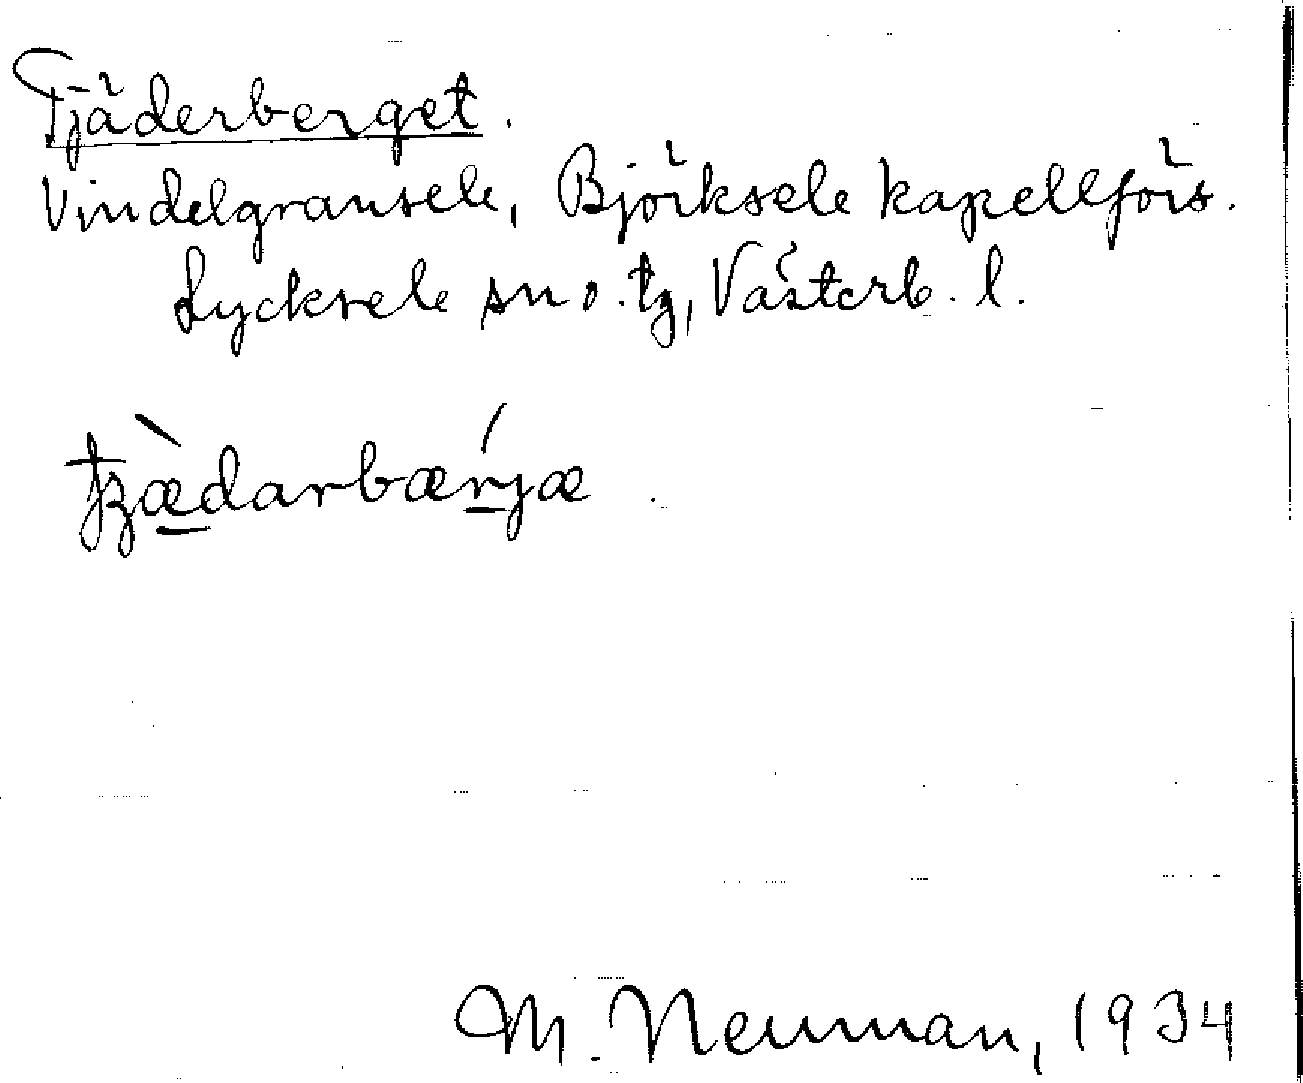 Tjäderberget.
Vindelgransele, Björksele kapellförs.
Lycksele sn o. tg, Västerb. l.
tʒæ̀darbærjæ.
M. Neuman, 1934